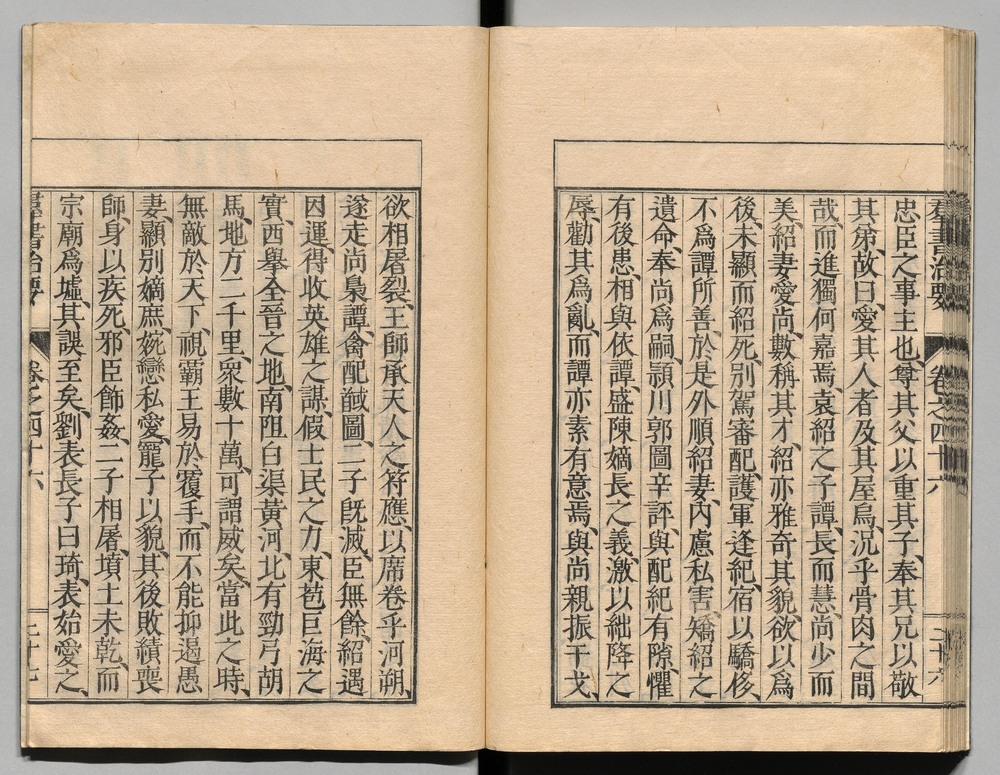 羣書治要 卷之四十六 二十六
忠臣之事主也、尊其父以重其子、奉其兄以敬
其弟、故曰愛其人者及其屋烏、況乎骨肉之間
哉、而進獨何嘉焉、袁紹之子譚長而慧、尚少而
美、紹妻愛尚、數稱其才、紹亦雅奇其貌、欲以爲
後、未顯而紹死、別駕審配、護軍逢紀、宿以驕侈、
不爲譚所善、於是外順紹妻、內慮私害、矯紹之
遺命、奉尚爲嗣、潁川郭圖辛評、與配紀有隙、懼
有後患、相與依譚、盛陳嫡長之義、激以絀降之
辱、勸其爲亂、而譚亦素有意焉、與尚親振干戈、
欲相屠裂、王師承天人之符應、以席卷乎河朔、
遂走尚梟譚、禽配馘圖、二子既滅、臣無餘、紹遇
因運、得收英雄之謀、假士民之力、東苞巨海之
實、西舉全晉之地、南阻白渠黃河、北有勁弓胡
馬、地方二千里、衆數十萬、可謂威矣、當此之時、
無敵於天下、視霸王易於覆手、而不能抑遏愚
妻、顯別嫡庶、婉戀私愛、寵子以貌、其後敗績喪
師、身以疾死、邪臣飾姦、二子相屠、墳土未乾、而
宗廟爲墟、其誤至矣、劉表長子曰琦、表始愛之、
羣書治要 卷之四十六 二十七